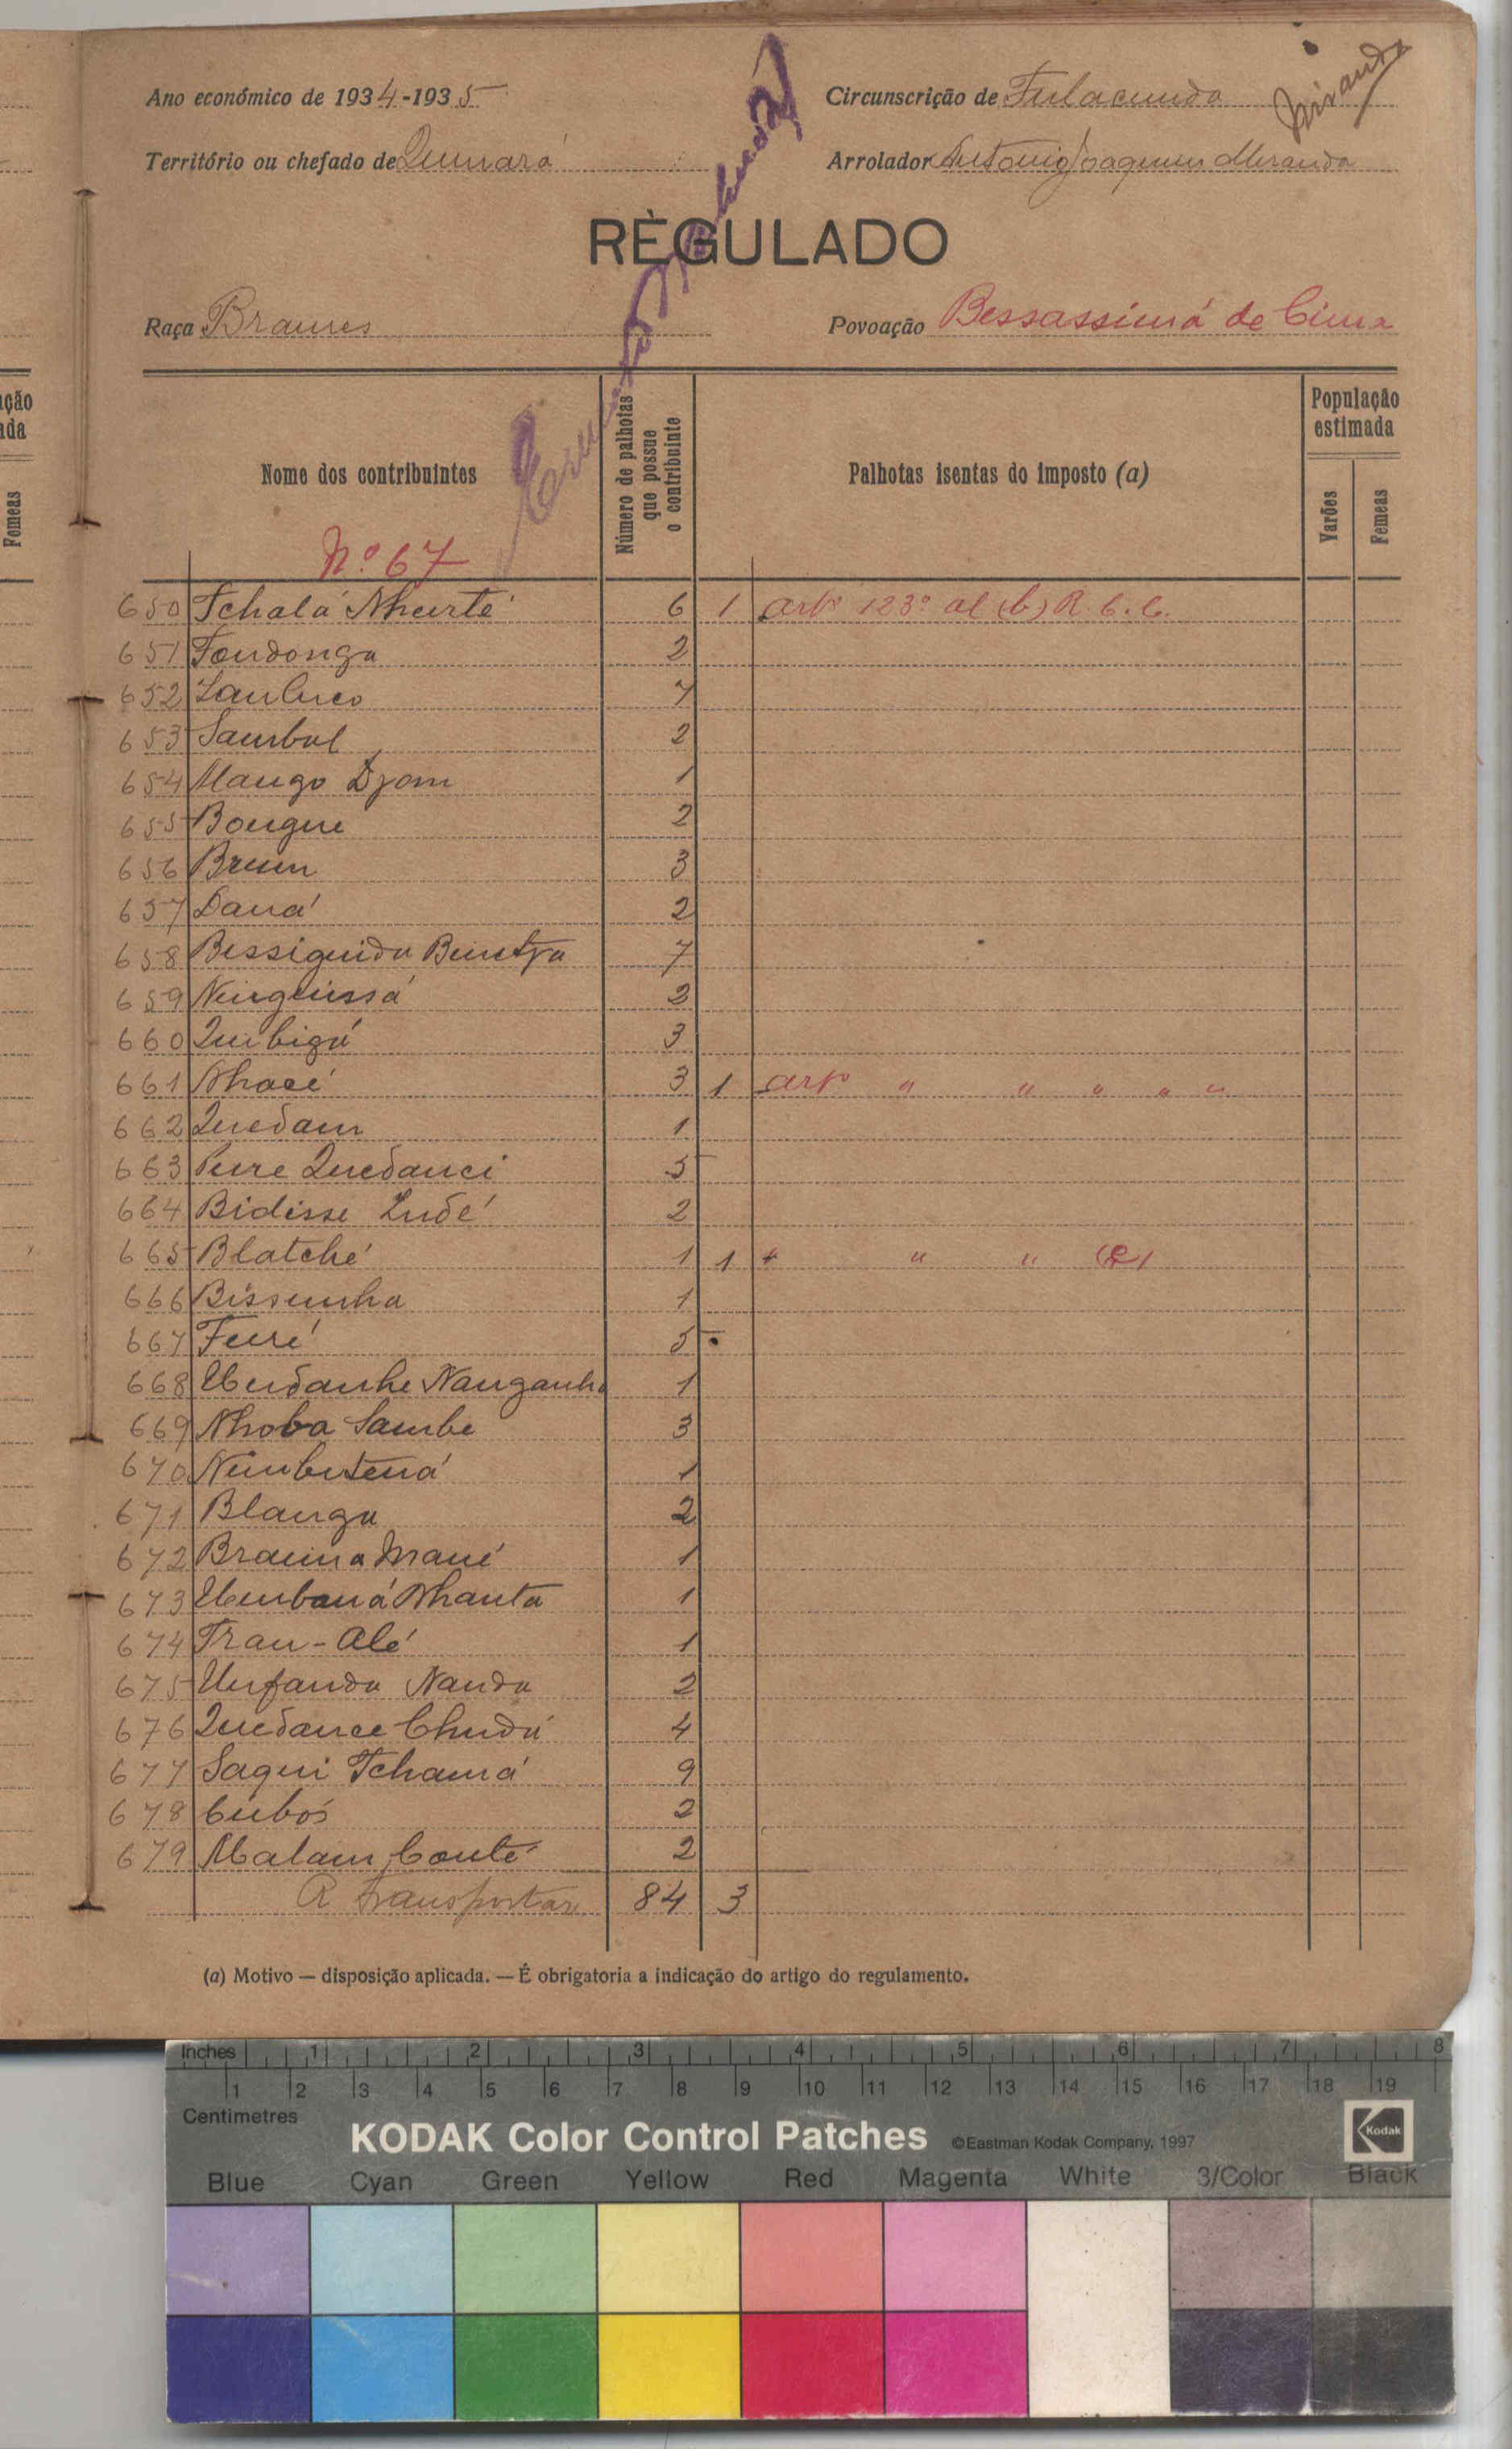 Ano económico de 1934-1935
Circunscrição de Fulacunda
Território ou chefado de Quinará
Arrolador António Joaquim Miranda
RÈGULADO
Raça Brames
Povoação Bessassimá de Cima
Nome dos contribuintes
Número de palhotas que possue o contribuinte
Palhotas isentas do imposto (a)
População estimada
Varões
Femeas
Nº 67
650 Tchalá Nhurté 6 1 artº 123º al (b) R. C. C.
651 Fondonga 2
652 7
653 Sambul 2
654 Mango Djom 1
655 Bongue 2
656 Brum 3
657 Daná 2
658 Bessiguida 7
659 Ninguissá 2
660 Quibigá 3
661 3 1 artº " " " " "
662 Quedam 1
663 Quedanci 5
664 Bidisse Ludé 2
665 Blatché 1 1 " " "
666 Bissunha 1
667 5
668 1
669 Nhoba Sambe 3
670 1
671 Blanga 2
672 Braima Mané 1
673 Nhanta 1
674 Fran-Alé 1
675 Unfanda Nanda 2
676 Quedance 4
677 Saqui Tchamá 9
678 2
679 Malam Conté 2
A transportar 84 3
(a) Motivo — disposição aplicada. — É obrigatoria a indicação do artigo do regulamento.
Femeas
Inches 1 2 3 4 5 6 7 8
1 2 3 4 5 6 7 8 9 10 11 12 13 14 15 16 17 18 19
Centimetres
KODAK Color Control Patches ©Eastman Kodak Company, 1997 Kodak
Blue Cyan Green Yellow Red Magenta White 3/Color Black